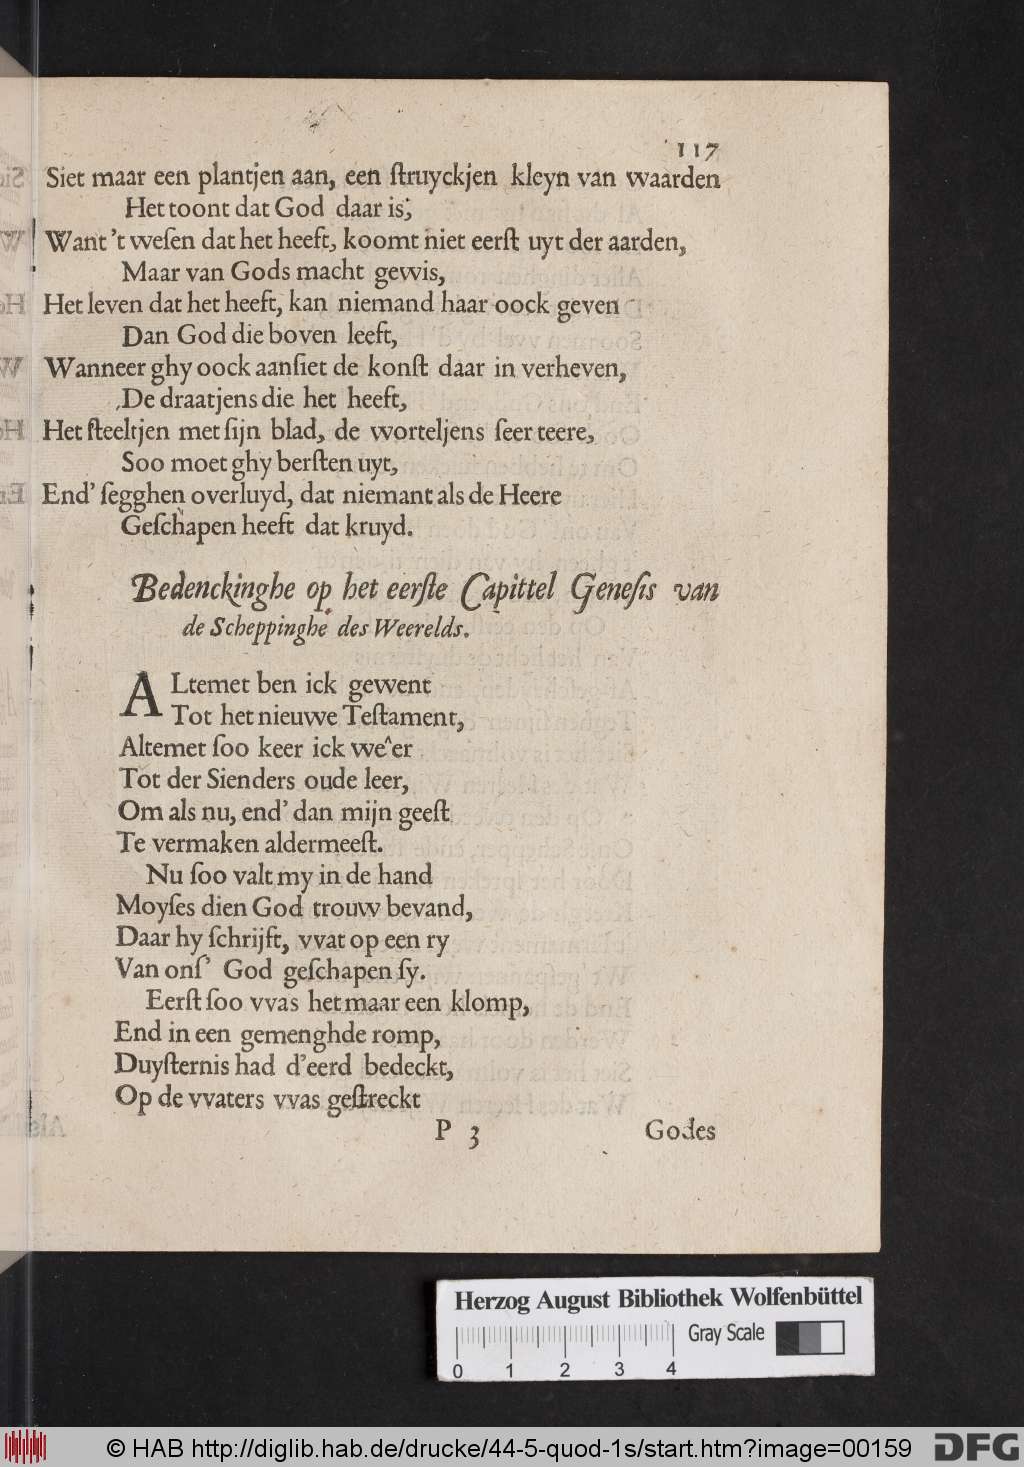 117
Siet maar een plantjen aan, een ſtruyckjen kleyn van waarden
Het toont dat God daar is;
Want 't weſen dat het heeft, koomt niet eerſt uyt der aarden,
Maar van Gods macht gewis,
Het leven dat het heeft, kan niemand haar oock geven
Dan God die boven leeft,
Wanneer ghy oock aanſiet de konſt daar in verheven,
De draatjens die het heeft,
Het ſteeltjen met ſijn blad, de worteljens ſeer teere,
Soo moet ghy berſten uyt,
End' ſegghen overluyd, dat niemant als de Heere
Geſchapen heeft dat kruyd.
Bedenckinghe op het eerſte Capittel Geneſis van
de Scheppinghe des Weerelds.
ALtemet ben ick gewent
Tot het nieuwe Teſtament,
Altemet ſoo keer ick we^er
Tot der Sienders oude leer,
Om als nu, end' dan mijn geeſt
Te vermaken aldermeeſt.
Nu ſoo valt my in de hand
Moyſes dien God trouw bevand,
Daar hy ſchrijft, vvat op een ry
Van onſ' God geſchapen ſy.
Eerſt ſoo vvas het maar een klomp,
End in een gemenghde romp,
Duyſternis had d'eerd bedeckt,
Op de vvaters vvas geſtreckt
P 3 Godes
Herzog August Bibliothek Wolfenbüttel
Gray Scale
0 1 2 3 4
© HAB http://diglib.hab.de/drucke/44-5-quod-1s/start.htm?image=00159
DFG